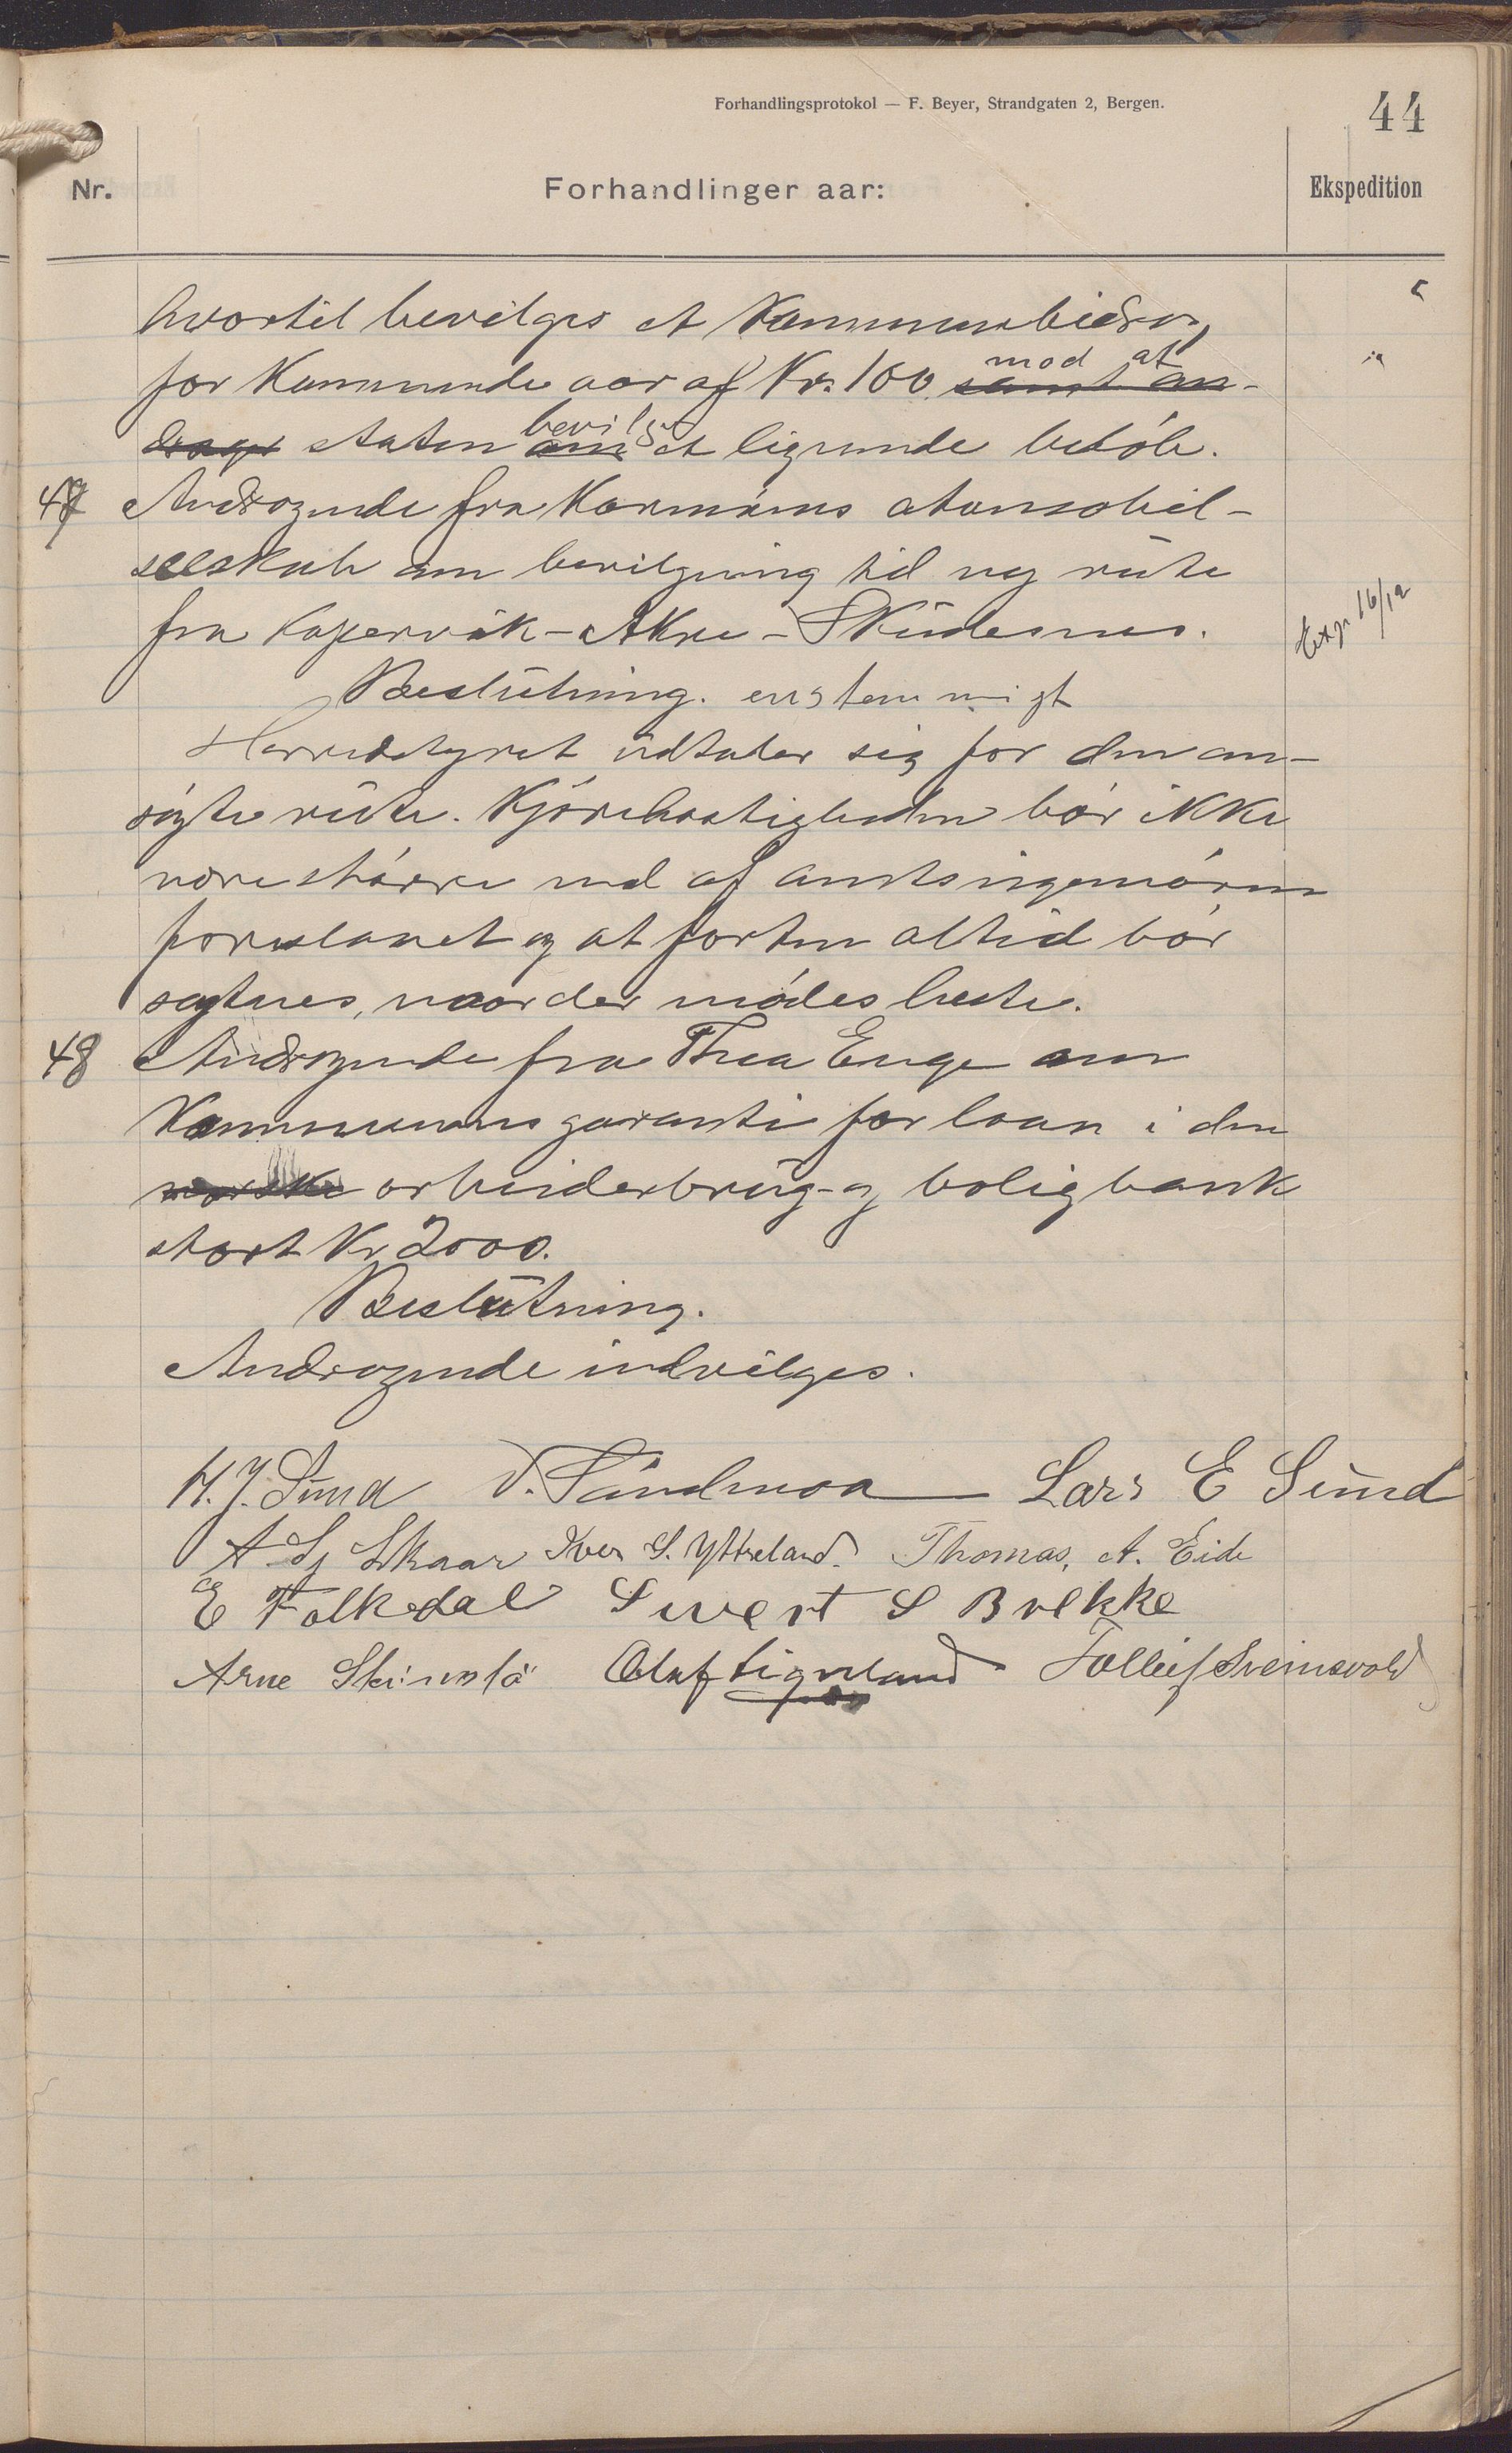 Forhandlingsprotokol — F. Beyer, Strandgaten 2, Bergen.
44
Nr.
Forhandlinger aar:
Ekspedition
hvortil bevilges et Kommunebidrag
for kommende aar af Kr. 100. samt an-
mod at
drager staten om et lignende beløb.
bevilger
47 Andragende fra Karmøens automobil-
selskab om bevilgning til ny rute
fra Kopervik - Akre - Skudesnes.
Exp. 16/12
Beslutning. enstemmigt
Herredstyret udtaler sig for den an-
søgte rute. Kjørehastigheden bør ikke
være større end af amtsingeniøren
foreslaaet og at farten altid bør
sagtnes, naar der mødes heste.
48 Andragende fra Thea Enge om
Kommunens garanti for laan i den
norske arbeiderbrug- og boligbank
stort Kr 2000.
Beslutning.
Andragende indvilges.
H. J. Sund V. Sandmoa Lars E Sund
A Lj Skaar Iver S. Yttreland. Thomas, A. Eide
E Folkedal Sivert S Brekke
Arne Olaf Lignland Tolleif Sveinsvold